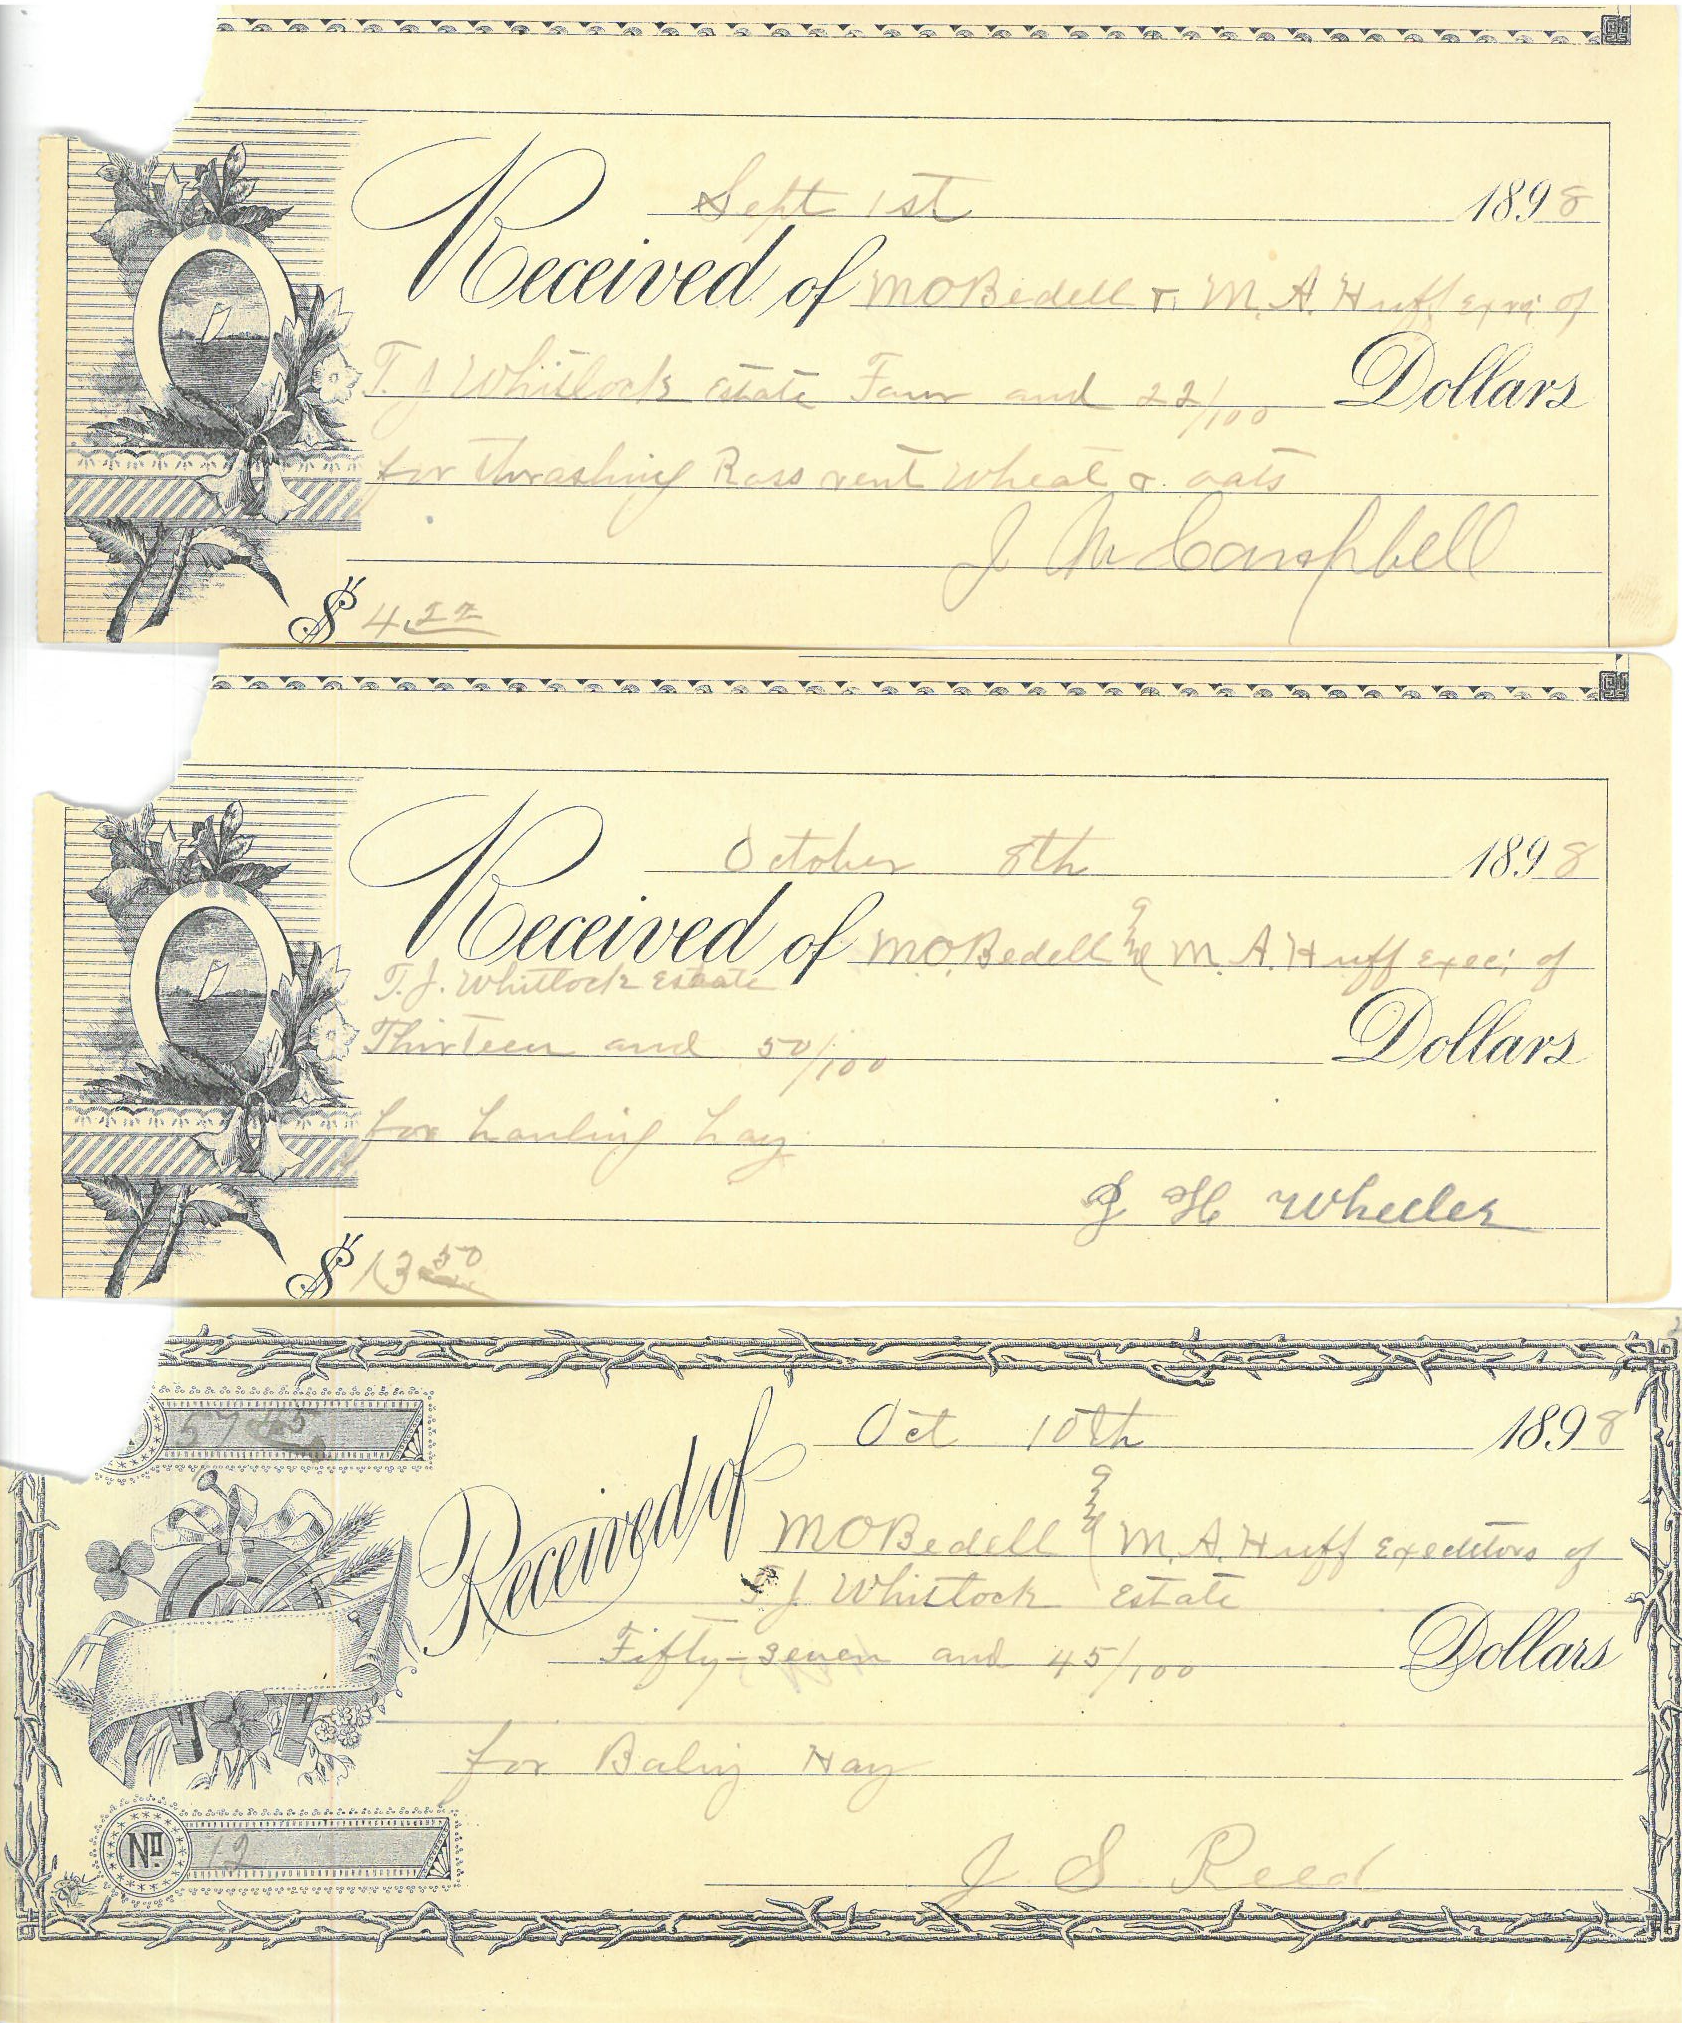 Sept 1st 1898
Received of M O Bedell & M. A. Huff Exrs of
T. J Whitlock Estate Four and 22/100 Dollars
for thrashing Ross rent Wheat & oats
J M Campbell
$ 4.22
October 8th 1898
Received of M.O. Bedell & M. A. Huff Exec; of
T. J. Whitlock Estate
Thirteen and 50/100 Dollars
for hauling hay
J H Wheeler
$ 13 50
57 45
Oct 10th 1898
Received of M O Bedell & M. A. Huff Exeditors of
T J Whitlock Estate
Fifty-seven and 45/100 Dollars
for Baling Hay
No 12
J S Reed